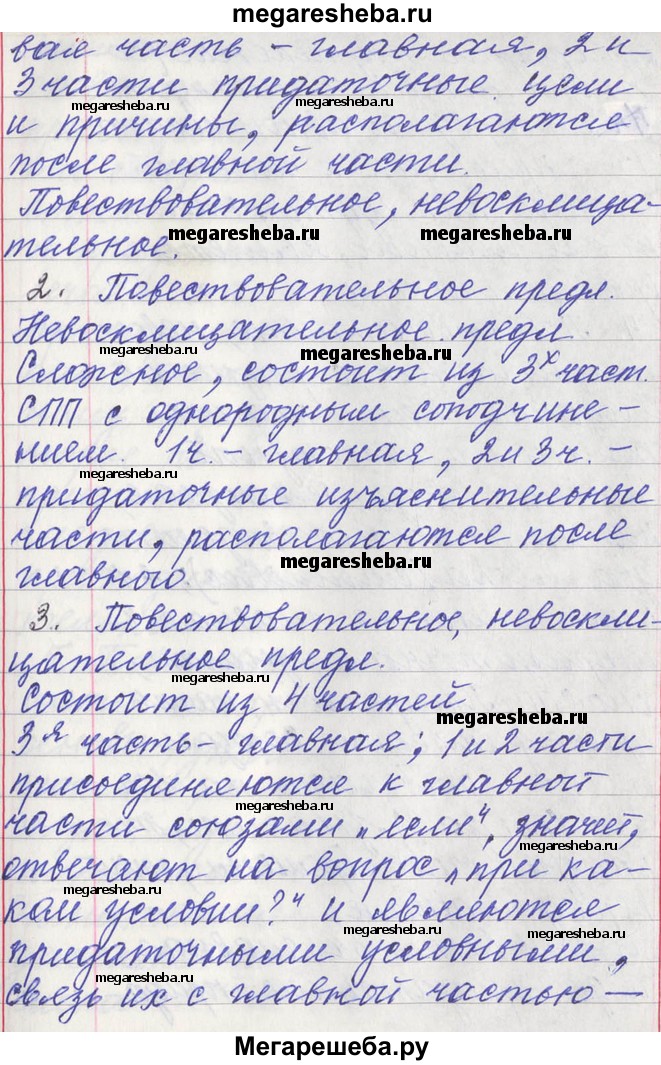 megaresheba.ru
вая часть – главная, 2 и
3 части придаточные цели
megaresheba.ru
megaresheba.ru
и причины, располагаются
после главной части.
Повествовательное, невосклица-
тельное.
megaresheba.ru
megaresheba.ru
2. Повествовательное предл.
Невосклицательное предл
megaresheba.ru
megaresheba.ru
Сложное, состоит из 3х част.
СПП с однородным соподчине-
нием. 1ч. – главная, 2 и 3 ч. –
megaresheba.ru
придаточные изъяснительные
части, располагаются после
megaresheba.ru
главного.
3. Повествовательное, невоскли-
цательное предл.
megaresheba.ru
Состоит из 4 частей
megaresheba.ru
3я часть – главная; 1 и 2 части
присоединяются к главной
megaresheba.ru
части союзами „если“, значит,
megaresheba.ru
отвечают на вопрос „при ка-
megaresheba.ru
ком условии?“ и являются
придаточными условными,
megaresheba.ru
megaresheba.ru
связь их с главной частью –
Мегарешеба.ру